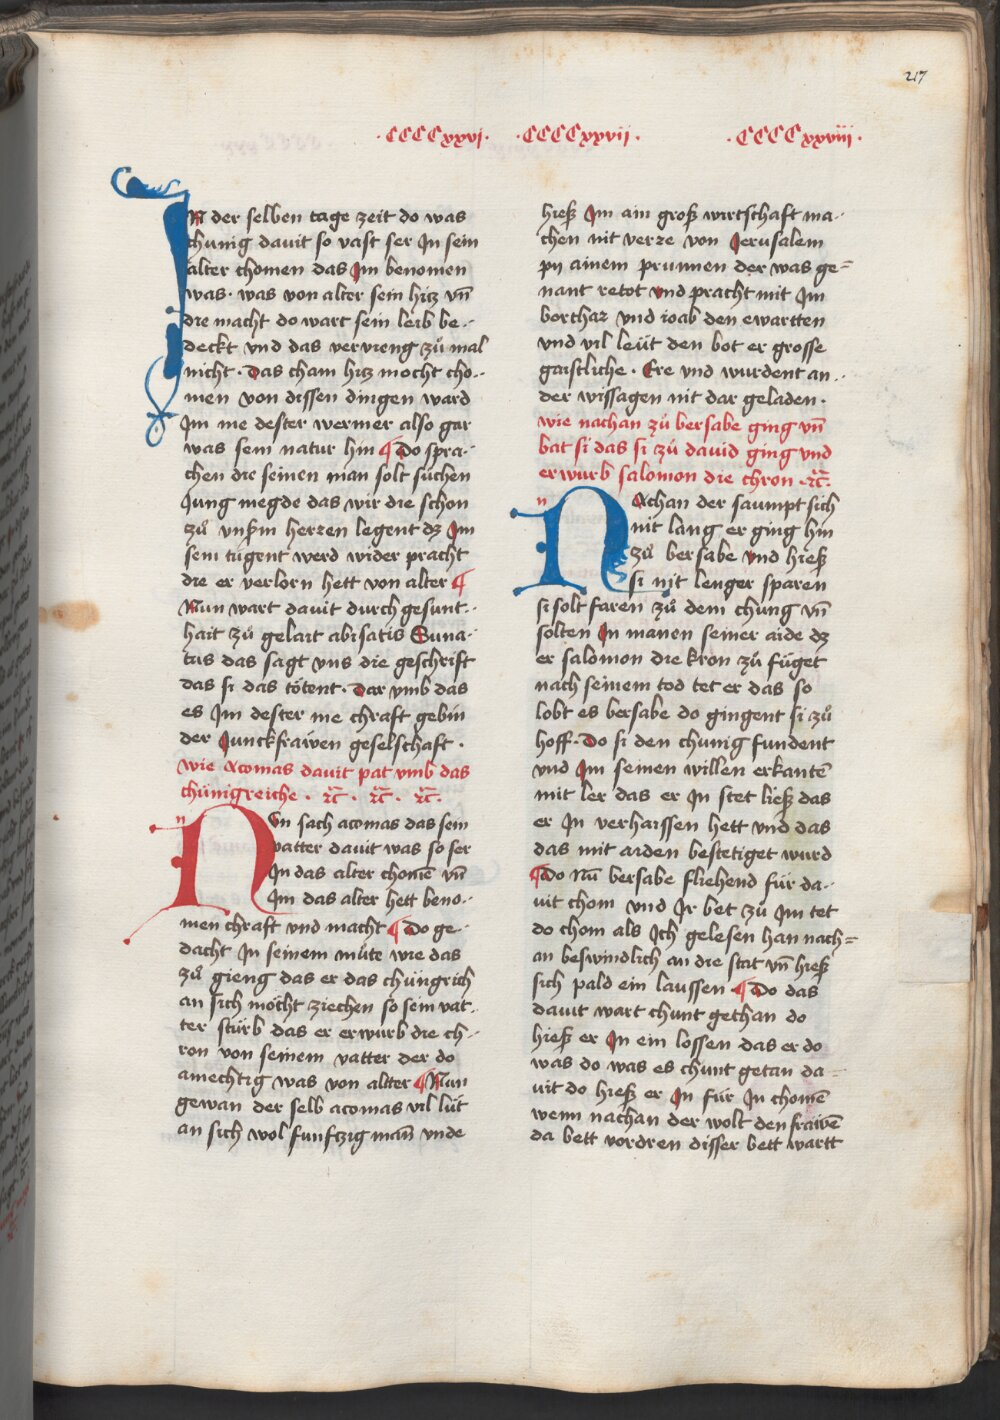 217
·CCCCxxvi· ·CCCCxxvii· ·CCCCxxviii·
IN der selben tage zeit do was
chunig dauit so vast ser Jn sein
alter chomen das Jm benomen
was· was von alter sein hitz vn̄
die macht do wart sein leib be-
deckt vnd das vervieng zů mal
nicht· Das cham hitz mocht cho-
men von dissen dingen ward
Jm nie dester wermer also gar
was sein natur hin ¶ Do spra-
chen die seinen man solt sůchen
Jung megde das wir die schon
zů vnserm herzen legent dz Jm
sein tugent werd wider pracht
die er verlorn hett von alter ¶
Nun wart dauit durch gesunt-
hait zů gelait abisatis Suna-
tus das sagt vns die geschrift
das si das tötent· Dar vmb das
es Jm dester me chraft gebin
der Junckfrawen geselschaft·
wie Acomas dauit pat vmb das
chünigreiche· ꝛc̄· ꝛc̄· ꝛc̄·
Nun sach acomas das sein
vatter dauit was so ser
Jn das alter chomē vn̄
Jm das alter hett beno-
men chraft vnd macht ¶ Do ge-
dacht Jn seinem můte wie das
zů gieng das er das chüngrich
an sich möcht ziechen so sein vat-
ter stürb das er erwurb die ch-
ron von seinem vatter der do
amechtig was von altter ¶ Nun
gewan der selb acomas vil lüt
an sich wol funftzig man̄ vnde
hieß Jm ain groß wirtschaft ma-
chen nit verre von Jerusalem
py ainem prunnen der was ge=
nant retot vnd pracht mit Jm
borthar vnd ioab den ewartten
vnd vil leüt den bot er grosse
gaistliche· Ere vnd wurdent an-
der wissagen nit dar geladen·
wie nachan zů bersabe ging vn̄
bat si das si zů dauid ging vnd
erwurb salomon die chron·ꝛc̄·
NAchan der saumpt sich
nit lang er ging hin
zů bersabe vnd hieß
si nit lenger sparen
si solt faren zů dem chung vn̄
solten Jn manen seiner aide dz
er salomon die kron zů füget
nach seinem tod tet er das so
lobt es bersabe do gingent si zů
hoff· Do si den chunig fundent
vnd Jm seinen willen erkantē
mit ler das er Jn stet ließ das
er Jn verhaissen hett vnd das
das mit aiden bestetiget wurd
¶ Do nū bersabe fliehend für da-
uit chom vnd Jr bet zů Jm tet
do chom als Jch gelesen han nach=
an beswindlich an die stat vn̄ hieß
sich pald ein laussen ¶ Do das
dauit wart chunt gethan do
hieß er Jn ein lossen das er do
was do was es chunt getan da-
uit do hieß er Jn für Jn chomē
wenn nachan der wolt den frawē
da bett vordren disser bett wartt